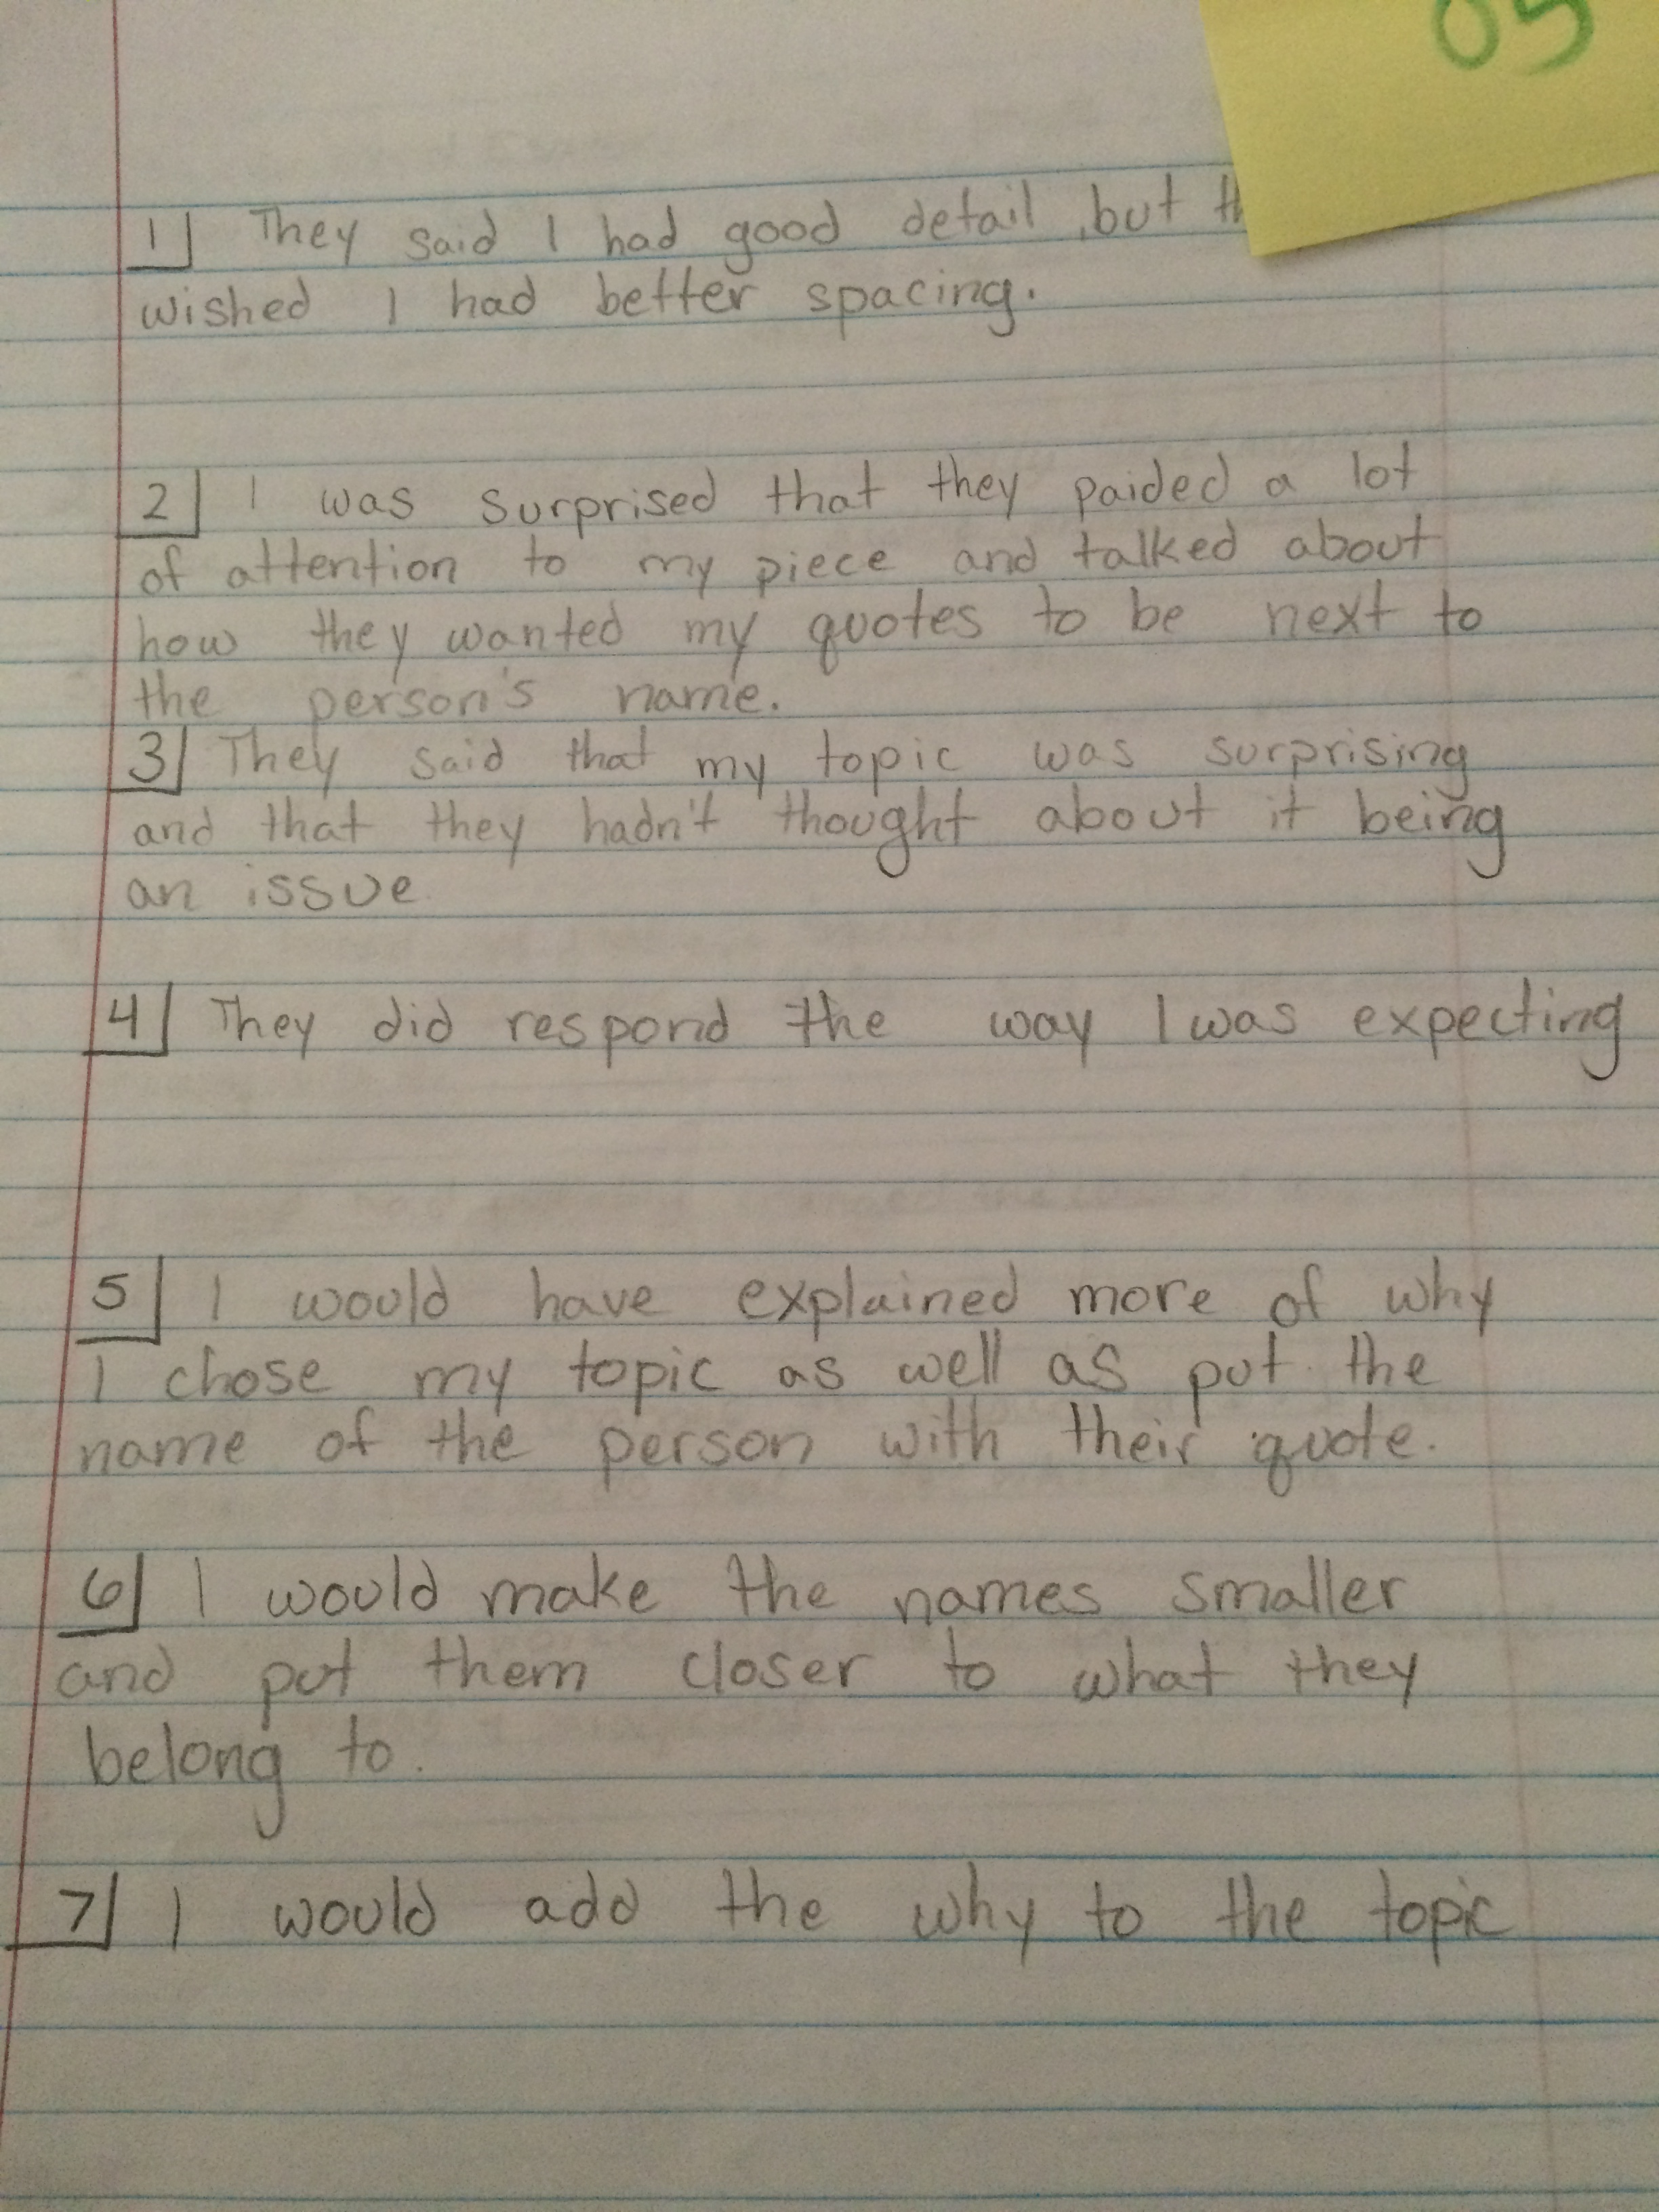 05
1 They said I had good detail, but th
wished I had better spacing.
2 I was surprised that they paided a lot
of attention to my piece and talked about
how they wanted my quotes to be next to
the person's name.
3 They said that my topic was surprising
and that they hadn't thought about it being
an issue
4 They did respond the way I was expecting
5 I would have explained more of why
I chose my topic as well as put the
name of the person with their quote.
6 I would make the names smaller
and put them closer to what they
belong to.
7 I would add the why to the topic